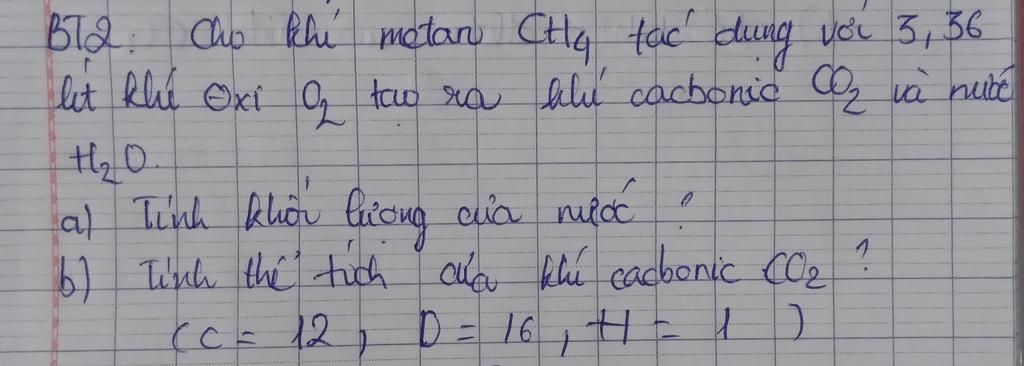 BT2: Cho khí metan CH4 tác dụng với 3,36
lít khí oxi O2 tạo ra khí cacbonic CO2 và nước
H2O.
a) Tính khối lượng của nước ?
b) Tính thể tích của khí cacbonic CO2 ?
(C = 12, O = 16, H = 1 )